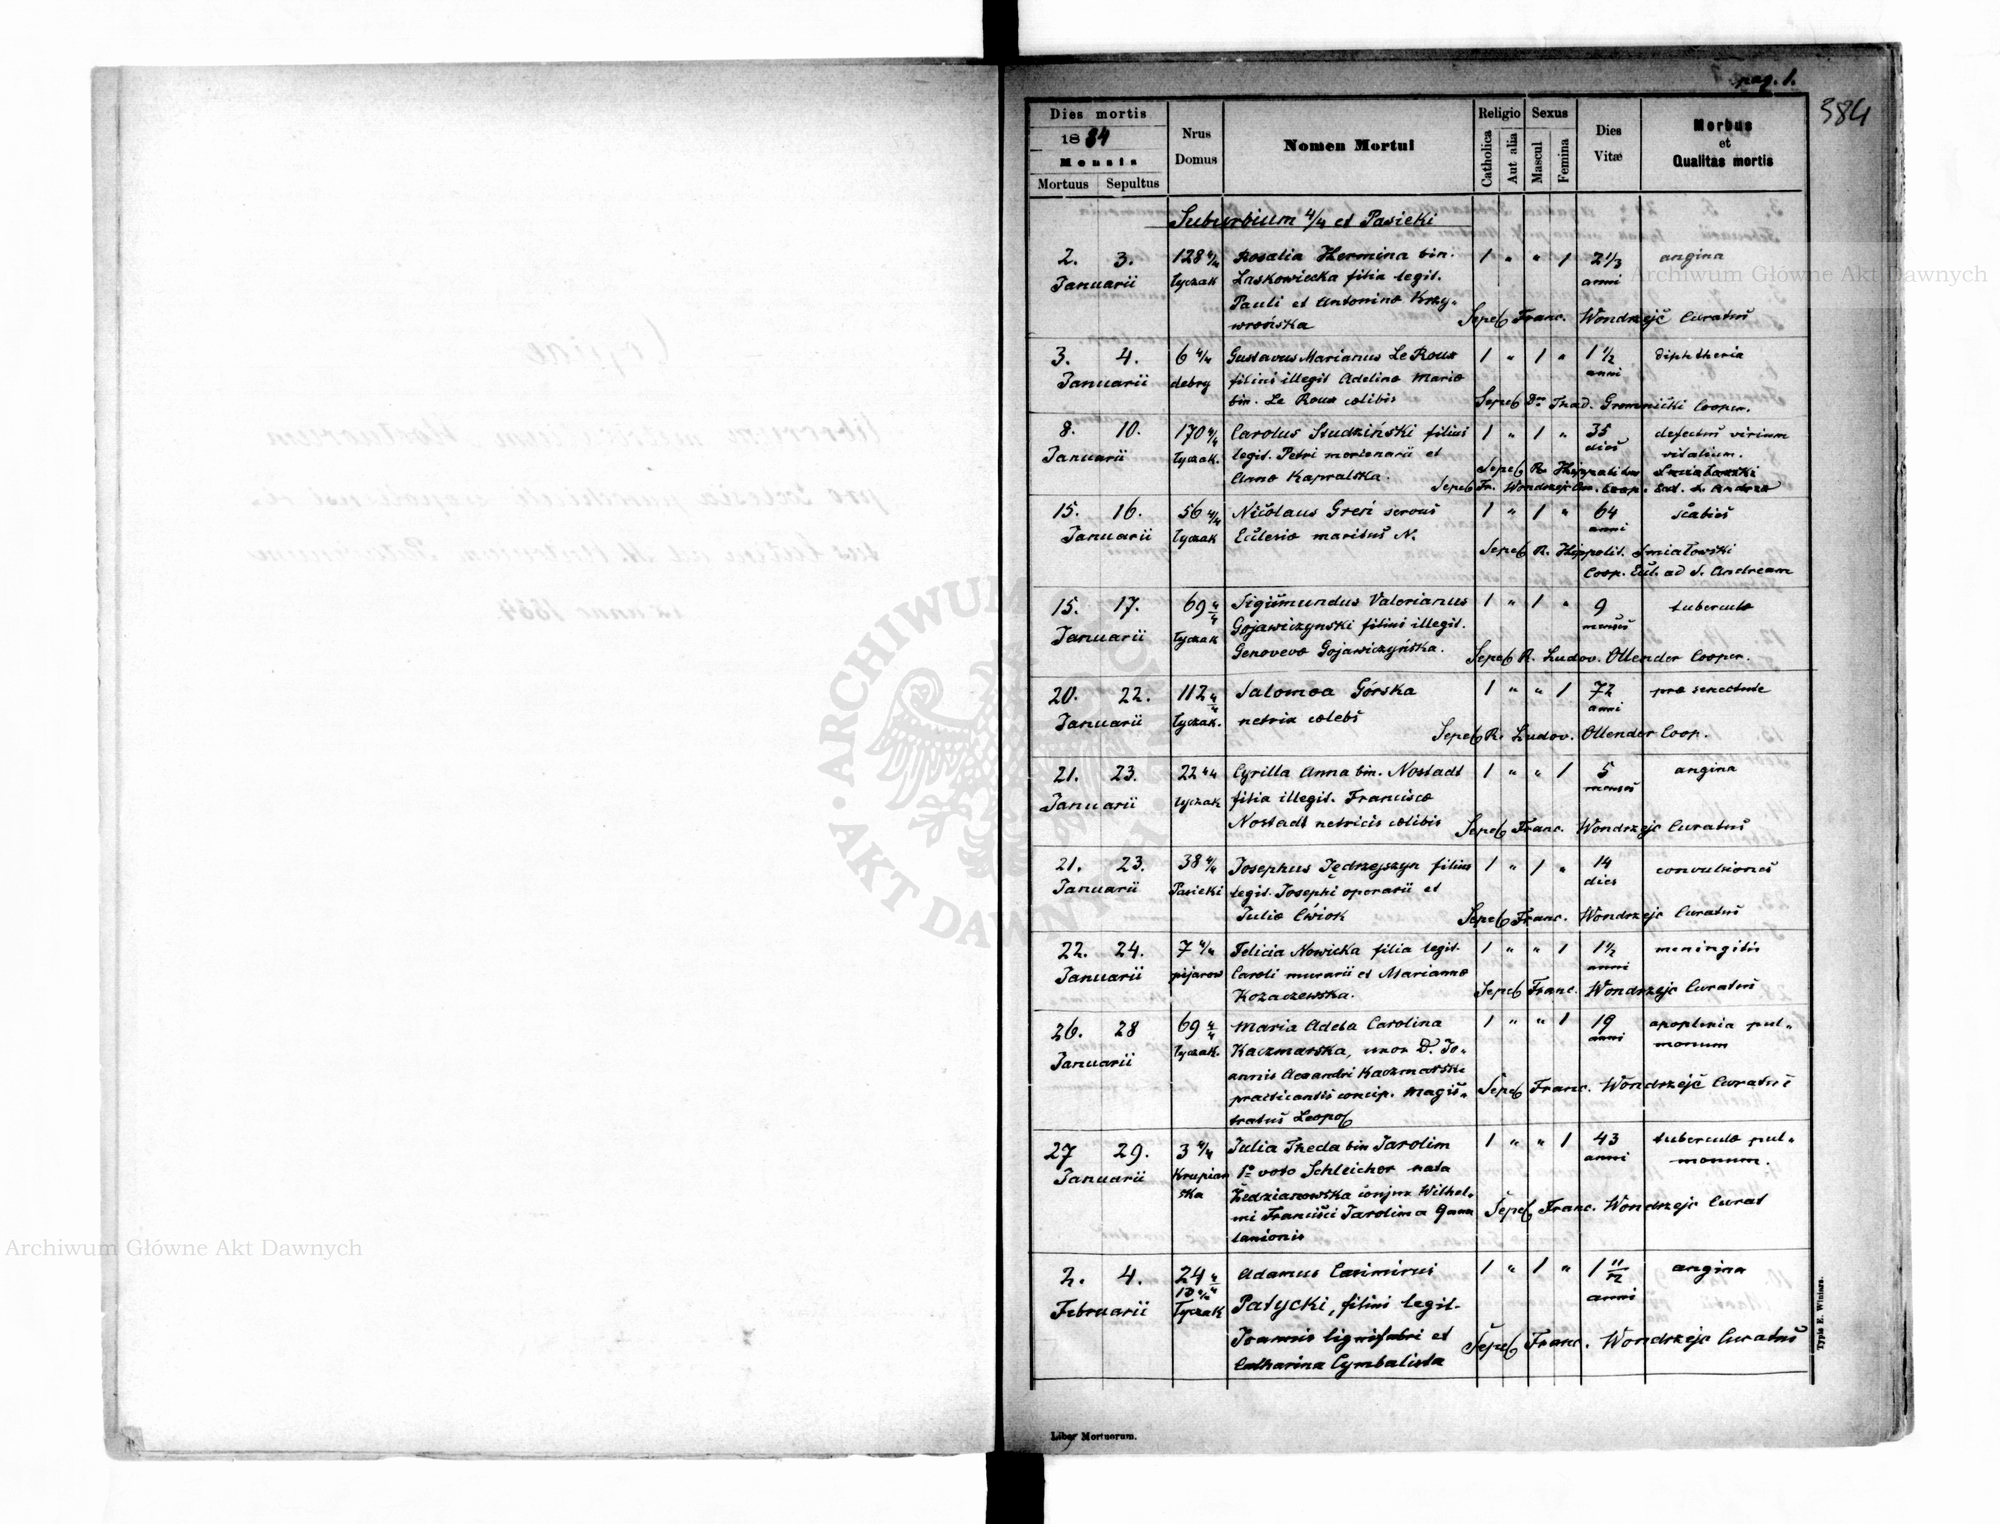 pag. 1.
384
Dies mortis
1884
Mensis
Mortuus Sepultus
Nrus Domus
Nomen Mortui
Religio
Catholica
Aut alia
Sexus
Mascul
Femina
Dies Vitæ
Morbus
et
Qualitas mortis
Suburbium 4/4 et Pasieki
2. 3. 128 4/4 Rosalia Hermina bin. 1 " " 1 2 1/3 angina
Januarii Łyczak Laskowiecka filia legit. anni
Pauli et Antoninæ Krzy-
wrońska Sepel Franc. Wondrzejc Curatus
3. 4. 6 4/4 Gustavus Marianus Le Roux 1 " 1 " 1 1/2 diphtheria
Januarii debry filius illegit Adelinæ Mariæ anni
bin. Le Roux cælibis Sepel Dr Thad. Gromnicki Cooper.
8. 10. 170 4/4 Carolus Studziński filius 1 " 1 " 35 defectus virium
Januarii Łyczak. legit. Petri mortenarii et dies vitalium.
Annæ Kapralska. Sepel R. Hippolitus
Sepel Fr. Wondrzejc
15. 16. 56 4/4 Nicolaus Gresi servus 1 " 1 " 64 scabies
Januarii Łyczak Ecclesiæ maritus N. anni
Sepel R. Hippolit. Smiałowski
Coop. Eccl. ad S. Andream
15. 17. 69 4/4 Sigismundus Valerianus 1 " 1 " 9 tuberculæ
Januarii Łyczak Gojawiczynski filius illegit. menses
Genovevæ Gojawiczyńska. Sepel R. Ludov. Ollender Cooper.
20. 22. 112 4/4 Salomea Górska 1 " " 1 72 præ senectute
Januarii Łyczak. netrix cælebs anni
Sepel R. Ludov. Ollender Coop.
21. 23. 22 4/4 Cyrilla Anna bin. Nostadt 1 " " 1 5 angina
Januarii Łyczak filia illegit. Franciscæ menses
Nostadt netricis cælibis Sepel Franc. Wondrzejc Curatus
21. 23. 38 4/4 Josephus Jędrzejszyn filius 1 " 1 " 14 convulsiones
Januarii Pasieki legit. Josephi operarii et dies
Juliæ Ćwiok Sepel Franc. Wondrzejc Curatus
22. 24. 7 4/4 Felicia Nowicka filia legit. 1 " " 1 1 1/2 meningitis
Januarii pijarow Caroli murarii et Mariannæ anni
Kozaczewska. Sepel Franc. Wondrzejc Curatus
26. 28 69 4/4 Maria Adela Carolina 1 " " 1 19 apoplexia pul-
Januarii Łyczak. Kaczmarska, uxor D. Jo- anni monum
annis Alexandri Kaczmarski
practicantis concip. Magis- Sepel Franc. Wondrzejc Curatus
tratus Leopol
27 29. 3 4/4 Julia Theda bin Jarolim 1 " " 1 43 tuberculæ pul-
Januarii Krupiarska 1º voto Schleicher nata anni monum.
Żedzianowska conjux Wilhel-
mi Francisci Jarolima Sepel Franc. Wondrzejc Curat
2. 4. 24 4/4 Adamus Casimirus 1 " 1 " 1 11/12 angina
Februarii Łyczak Patycki, filius legit. anni
Joannis lignifabri et Sepel Franc. Wondrzejc Curatus
Catharina Cymbalista
Typis E. Winiarz.
Liber Mortuorum.
Archiwum Główne Akt Dawnych
Archiwum Główne Akt Dawnych
ARCHIWUM GŁÓWNE
AKT DAWNYCH